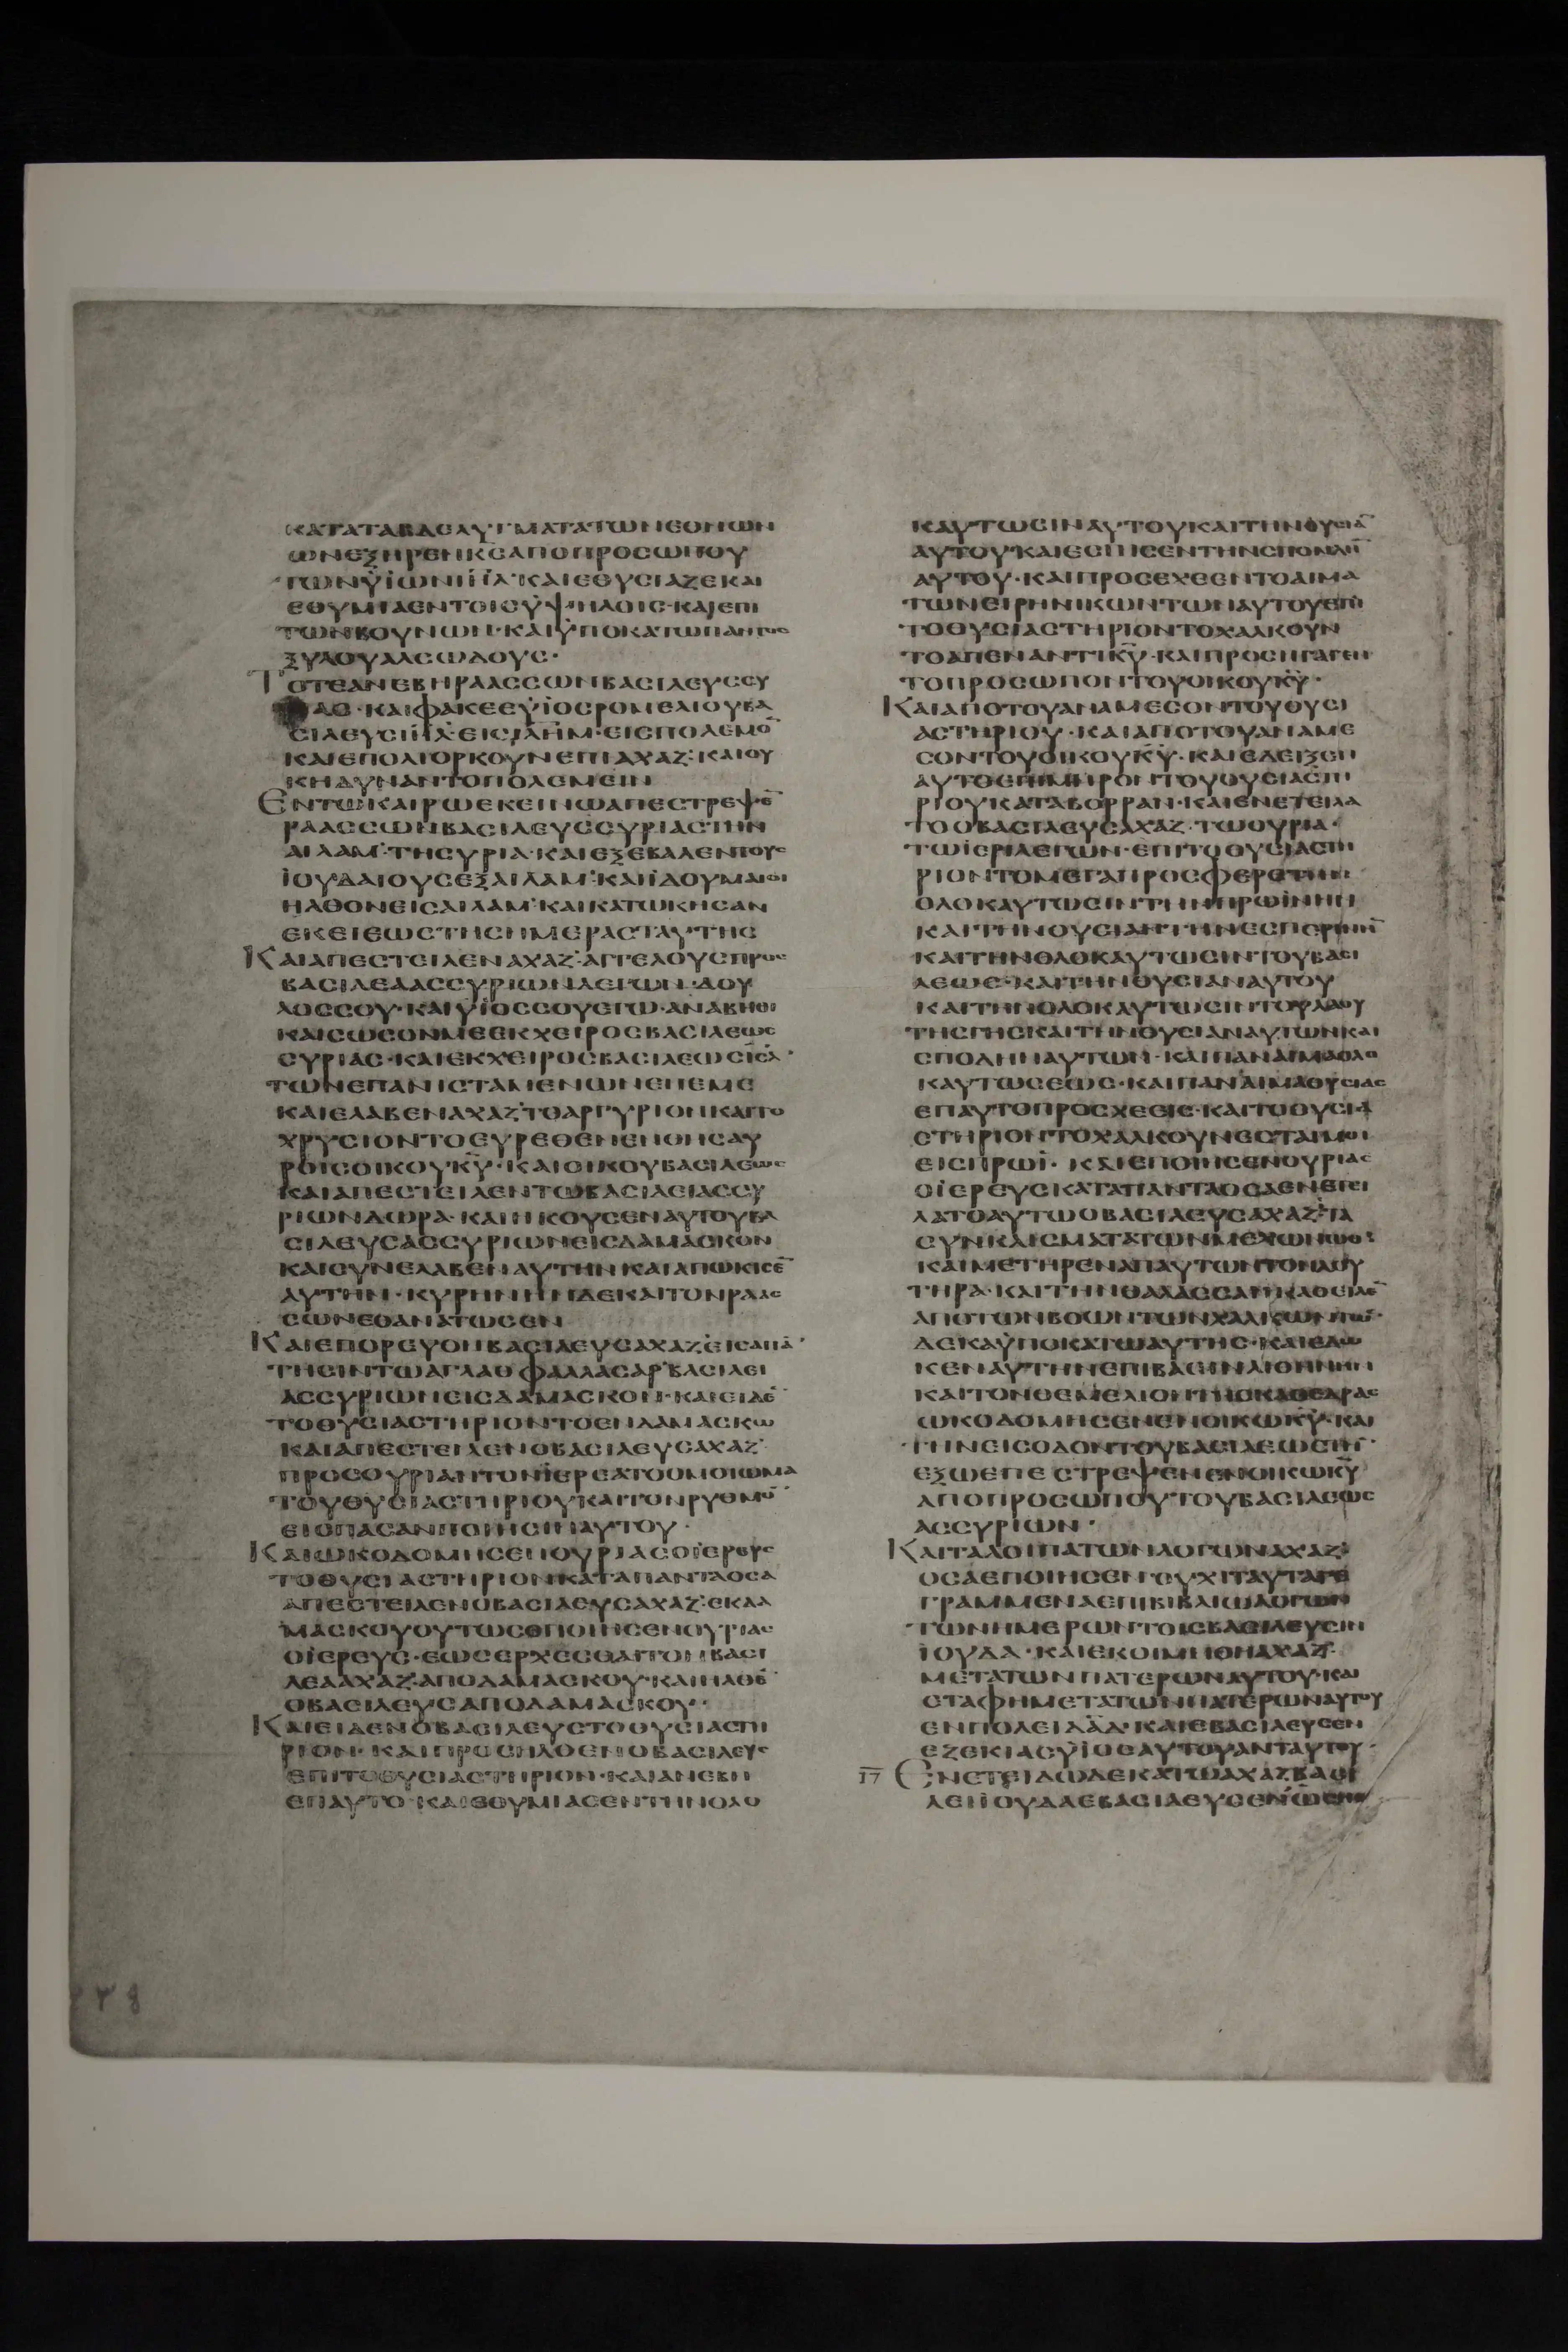 ΚΑΤΑΤΑΒΔΕΛΥΓΜΑΤΑΤΩΝΕΘΝΩΝ
ΩΝΕΞΗΡΕΝΚ̅Σ̅ΑΠΟΠΡΟΣΩΠΟΥ
ΤΩΝΫΪΩΝΙ̅Η̅Λ̅·ΚΑΙΕΘΥΣΙΑΖΕΚΑΙ
ΕΘΥΜΙΑΕΝΤΟΙΣΫΨΗΛΟΙΣ·ΚΑΙΕΠΙ
ΤΩΝΒΟΥΝΩΝ·ΚΑΙΫΠΟΚΑΤΩΠΑΝΤΟΣ
ΞΥΛΟΥΑΛΣΩΔΟΥΣ·
ΤΟΤΕΑΝΕΒΗΡΑΑΣΣΩΝΒΑΣΙΛΕΥΣΣΥ
ΑΣ·ΚΑΙΦΑΚΕΕΫΪΟΣΡΟΜΕΛΙΟΥΒΑ
ΣΙΛΕΥΣΙ̅Η̅Λ̅·ΕΙΣΙ̅Λ̅Η̅Μ̅·ΕΙΣΠΟΛΕΜΟ̅
ΚΑΙΕΠΟΛΙΟΡΚΟΥΝΕΠΙΑΧΑΖ·ΚΑΙΟΥ
ΚΗΔΥΝΑΝΤΟΠΟΛΕΜΕΙΝ
ΕΝΤΩΚΑΙΡΩΕΚΕΙΝΩΑΠΕΣΤΡΕΨΕ̅
ΡΑΑΣΣΩΝΒΑΣΙΛΕΥΣΣΥΡΙΑΣΤΗΝ
ΑΙΛΑΜ·ΤΗΣΥΡΙΑ·ΚΑΙΕΞΕΒΑΛΕΝΤΟΥΣ
ΪΟΥΔΑΙΟΥΣΕΞΑΙΛΑΜ·ΚΑΙΪΔΟΥΜΑΙΟΙ
ΗΛΘΟΝΕΙΣΑΙΛΑΜ·ΚΑΙΚΑΤΩΚΗΣΑΝ
ΕΚΕΙΕΩΣΤΗΣΗΜΕΡΑΣΤΑΥΤΗΣ
ΚΑΙΑΠΕΣΤΕΙΛΕΝΑΧΑΖ·ΑΓΓΕΛΟΥΣΠΡΟΣ
ΒΑΣΙΛΕΑΑΣΣΥΡΙΩΝΛΕΓΩΝ·ΔΟΥ
ΛΟΣΣΟΥ·ΚΑΙΫΪΟΣΣΟΥΕΓΩ·ΑΝΑΒΗΘΙ
ΚΑΙΣΩΣΟΝΜΕΕΚΧΕΙΡΟΣΒΑΣΙΛΕΩΣ
ΣΥΡΙΑΣ·ΚΑΙΕΚΧΕΙΡΟΣΒΑΣΙΛΕΩΣΙ̅Σ̅Λ̅·
ΤΩΝΕΠΑΝΙΣΤΑΜΕΝΩΝΕΠΕΜΕ
ΚΑΙΕΛΑΒΕΝΑΧΑΖ·ΤΟΑΡΓΥΡΙΟΝΚΑΙΤΟ
ΧΡΥΣΙΟΝΤΟΕΥΡΕΘΕΝΕΝΘΗΣΑΥ
ΡΟΙΣΟΙΚΟΥΚ̅Υ̅·ΚΑΙΟΙΚΟΥΒΑΣΙΛΕΩΣ
ΚΑΙΑΠΕΣΤΕΙΛΕΝΤΩΒΑΣΙΛΕΙΑΣΣΥ
ΡΙΩΝΔΩΡΑ·ΚΑΙΗΚΟΥΣΕΝΑΥΤΟΥΒΑ
ΣΙΛΕΥΣΑΣΣΥΡΙΩΝΕΙΣΔΑΜΑΣΚΟΝ
ΚΑΙΣΥΝΕΛΑΒΕΝΑΥΤΗΝΚΑΙΑΠΩΚΙΣΕ̅
ΑΥΤΗΝ·ΚΥΡΗΝΗΝΔΕΚΑΙΤΟΝΡΑΑΣ
ΣΩΝΕΘΑΝΑΤΩΣΕΝ
ΚΑΙΕΠΟΡΕΥΘΗΒΑΣΙΛΕΥΣΑΧΑΖ·ΕΙΣΑΠΑ̅·
ΤΗΣΙΝΤΩΑΓΛΑΘΦΑΛΛΑΣΑΡ·ΒΑΣΙΛΕΙ
ΑΣΣΥΡΙΩΝΕΙΣΔΑΜΑΣΚΟΝ·ΚΑΙΕΙΔΕ̅
ΤΟΘΥΣΙΑΣΤΗΡΙΟΝΤΟΕΝΔΑΜΑΣΚΩ
ΚΑΙΑΠΕΣΤΕΙΛΕΝΟΒΑΣΙΛΕΥΣΑΧΑΖ·
ΠΡΟΣΟΥΡΙΑΝΤΟΝΪΕΡΕΑΤΟΟΜΟΙΩΜΑ
ΤΟΥΘΥΣΙΑΣΤΗΡΙΟΥΚΑΙΤΟΝΡΥΘΜΟ̅
ΕΙΣΠΑΣΑΝΠΟΙΗΣΙΝΑΥΤΟΥ·
ΚΑΙΩΚΟΔΟΜΗΣΕΝΟΥΡΙΑΣΟΪΕΡΕΥΣ
ΤΟΘΥΣΙΑΣΤΗΡΙΟΝΚΑΤΑΠΑΝΤΑΟΣΑ
ΑΠΕΣΤΕΙΛΕΝΟΒΑΣΙΛΕΥΣΑΧΑΖ·ΕΚΔΑ
ΜΑΣΚΟΥΟΥΤΩΣΕΠΟΙΗΣΕΝΟΥΡΙΑΣ
ΟΪΕΡΕΥΣ·ΕΩΣΕΡΧΕΣΘΑΙΤΟΝΒΑΣΙ
ΛΕΑΑΧΑΖ·ΑΠΟΔΑΜΑΣΚΟΥ·ΚΑΙΗΛΘΕ̅
ΟΒΑΣΙΛΕΥΣΑΠΟΔΑΜΑΣΚΟΥ·
ΚΑΙΕΙΔΕΝΟΒΑΣΙΛΕΥΣΤΟΘΥΣΙΑΣΤΗ
ΡΙΟΝ·ΚΑΙΠΡΟΣΗΛΘΕΝΟΒΑΣΙΛΕΥΣ
ΕΠΙΤΟΘΥΣΙΑΣΤΗΡΙΟΝ·ΚΑΙΑΝΕΒΗ
ΕΠΑΥΤΟ·ΚΑΙΕΘΥΜΙΑΣΕΝΤΗΝΟΛΟ
ΚΑΥΤΩΣΙΝΑΥΤΟΥΚΑΙΤΗΝΘΥΣΙΑ̅
ΑΥΤΟΥ·ΚΑΙΕΣΠΙΣΕΝΤΗΝΣΠΟΝΔΗ̅
ΑΥΤΟΥ·ΚΑΙΠΡΟΣΕΧΕΕΝΤΟΑΙΜΑ
ΤΩΝΕΙΡΗΝΙΚΩΝΤΩΝΑΥΤΟΥΕΠΙ
ΤΟΘΥΣΙΑΣΤΗΡΙΟΝΤΟΧΑΛΚΟΥΝ
ΤΟΑΠΕΝΑΝΤΙΚ̅Υ̅·ΚΑΙΠΡΟΣΗΓΑΓΕΝ
ΤΟΠΡΟΣΩΠΟΝΤΟΥΟΙΚΟΥΚ̅Υ̅·
ΚΑΙΑΠΟΤΟΥΑΝΑΜΕΣΟΝΤΟΥΘΥΣΙ
ΑΣΤΗΡΙΟΥ·ΚΑΙΑΠΟΤΟΥΑΝΑΜΕ
ΣΟΝΤΟΥΟΙΚΟΥΚ̅Υ̅·ΚΑΙΕΔΕΙΞΕΝ
ΑΥΤΟΕΠΙΜΗΡΟΝΤΟΥΘΥΣΙΑΣΤΗ
ΡΙΟΥΚΑΤΑΒΟΡΡΑΝ·ΚΑΙΕΝΕΤΕΙΛΑ
ΤΟΟΒΑΣΙΛΕΥΣΑΧΑΖ·ΤΩΟΥΡΙΑ·
ΤΩΪΕΡΙΛΕΓΩΝ·ΕΠΙΤΟΘΥΣΙΑΣΤΗ
ΡΙΟΝΤΟΜΕΓΑΠΡΟΣΦΕΡΕΤΗΝ
ΟΛΟΚΑΥΤΩΣΙΝΤΗΝΠΡΩΪΝΗΝ
ΚΑΙΤΗΝΘΥΣΙΑΝΤΗΝΕΣΠΕΡΙΝΗ̅
ΚΑΙΤΗΝΟΛΟΚΑΥΤΩΣΙΝΤΟΥΒΑΣΙ
ΛΕΩΣ·ΚΑΙΤΗΝΘΥΣΙΑΝΑΥΤΟΥ
ΚΑΙΤΗΝΟΛΟΚΑΥΤΩΣΙΝΤΟΥΛΑΟΥ
ΤΗΣΓΗΣΚΑΙΤΗΝΘΥΣΙΑΝΑΥΤΩΝΚΑΙ
ΣΠΟΔΗΝΑΥΤΩΝ·ΚΑΙΠΑΝΑΙΜΑΟΛΟ
ΚΑΥΤΩΣΕΩΣ·ΚΑΙΠΑΝΑΙΜΑΘΥΣΙΑΣ
ΕΠΑΥΤΟΠΡΟΣΧΕΕΙΣ·ΚΑΙΤΟΘΥΣΙΑ
ΣΤΗΡΙΟΝΤΟΧΑΛΚΟΥΝΕΣΤΑΙΜΟΙ
ΕΙΣΠΡΩΪ·ΚΑΙΕΠΟΙΗΣΕΝΟΥΡΙΑΣ
ΟΪΕΡΕΥΣΚΑΤΑΠΑΝΤΑΟΣΑΕΝΕΤΕΙ
ΛΑΤΟΑΥΤΩΟΒΑΣΙΛΕΥΣΑΧΑΖ·ΤΑ
ΣΥΝΚΛΙΣΜΑΤΑΤΩΝΜΕΧΩΝΩΘ·
ΚΑΙΜΕΤΗΡΕΝΑΠΑΥΤΩΝΤΟΝΛΟΥ
ΤΗΡΑ·ΚΑΙΤΗΝΘΑΛΑΣΣΑΝΚΑΘΕΙΛΕ̅
ΑΠΟΤΩΝΒΟΩΝΤΩΝΧΑΛΚΩΝΤΩ̅·
ΔΕΚΑΫΠΟΚΑΤΩΑΥΤΗΣ·ΚΑΙΕΔΩ
ΚΕΝΑΥΤΗΝΕΠΙΒΑΣΙΝΛΙΘΙΝΗΝ
ΚΑΙΤΟΝΘΕΜΕΛΙΟΝΤΗΣΚΑΘΕΔΡΑΣ
ΩΚΟΔΟΜΗΣΕΝΕΝΟΙΚΩΚ̅Υ̅·ΚΑΙ
ΤΗΝΕΙΣΟΔΟΝΤΟΥΒΑΣΙΛΕΩΣΤΗ̅·
ΕΞΩΕΠΕΣΤΡΕΨΕΝΕΝΟΙΚΩΚ̅Υ̅
ΑΠΟΠΡΟΣΩΠΟΥΤΟΥΒΑΣΙΛΕΩΣ
ΑΣΣΥΡΙΩΝ·
ΚΑΙΤΑΛΟΙΠΑΤΩΝΛΟΓΩΝΑΧΑΖ·
ΟΣΑΕΠΟΙΗΣΕΝ·ΟΥΧΙΤΑΥΤΑΓΕ
ΓΡΑΜΜΕΝΑΕΠΙΒΙΒΛΙΩΛΟΓΩΝ
ΤΩΝΗΜΕΡΩΝΤΟΙΣΒΑΣΙΛΕΥΣΙΝ
ΪΟΥΔΑ·ΚΑΙΕΚΟΙΜΗΘΗΑΧΑΖ·
ΜΕΤΑΤΩΝΠΑΤΕΡΩΝΑΥΤΟΥ·ΚΑΙ
ΕΤΑΦΗΜΕΤΑΤΩΝΠΑΤΕΡΩΝΑΥΤΟΥ
ΕΝΠΟΛΕΙΔ̅Α̅Δ̅·ΚΑΙΕΒΑΣΙΛΕΥΣΕΝ
ΕΖΕΚΙΑΣΫΪΟΣΑΥΤΟΥΑΝΤΑΥΤΟΥ·
17 ΕΝΕΤΕΙΔΩΔΕΚΑΤΩΑΧΑΖ·ΒΑΣΙ
ΛΕΙΪΟΥΔΑΕΒΑΣΙΛΕΥΣΕΝΩΣΗΕ